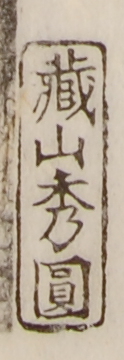 藏山秀圓